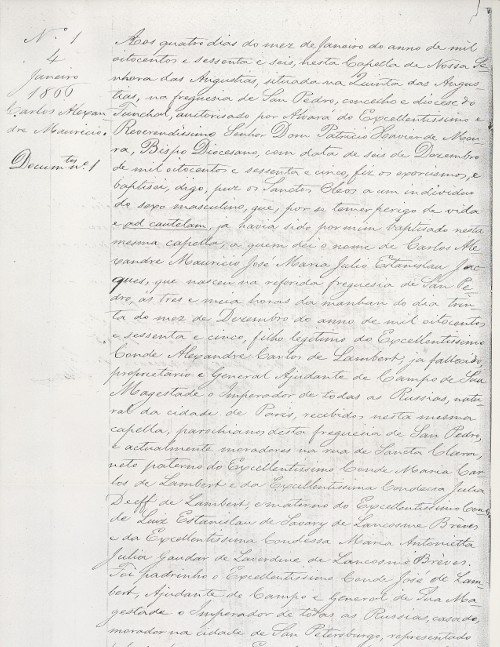 Nº 1
4
Janeiro
1866
Carlos Alexan
dre Mauricio.
Documtos nº 1
Aos quatro dias do mez de Janeiro do anno de mil
oitocentos e sessenta e seis, nesta Capella de Nossa Se-
nhora das Angustias, situada na Quinta das Angus
tias, na freguesia de San Pedro, concelho e diócese do
Funchal, auctorisado por Alvara do Excellentissimo e
Reverendissimo Senhor Dom Patricio Xavier de Mou
ra, Bispo Diocesano, com data de seis de Dezembro
de mil oitocentos e sessenta e cinco, fiz os exorcismos, e
baptisei, digo, puz os Sanctos Oleos a um individuo
do sexo masculino, que, por se temer perigo de vida
e ad cautelam, ja havia sido por mim baptisado nesta
mesma capella, a quem dei o nome de Carlos Ale
xandre Mauricio José Maria Julio Estanislau Jac
ques, que nasceu na referida freguesia de San Pe
dro, as tres e meia horas da manhan do dia trin
ta do mez de Dezembro do anno de mil oitocentos
e sessenta e cinco, filho legitimo do Excellentissimo
Conde Alexandre Carlos de Lambert, ja fallecido,
proprietario e General Ajudante de Campo de Sua
Magestade o Imperador de todas as Russias, natu
ral da cidade de Paris, recebidos nesta mesma
capella, parochianos desta freguesia de San Pedro,
e actualmente moradores na rua de Sancta Clara,
neto paterno do Excellentissimo Conde Maria Car
los de Lambert e da Excellentissima Condessa Julia
Deeff de Lambert, e materno do Excellentissimo Con
de Luiz Estanislau de Savary de Lancosme Brèves
e da Excellentissima Condessa Maria Antonietta
Julia Gaudar de Laverdine de Lancosme Brèves.
Foi padrinho o Excellentissimo Conde José de Lam
bert, Ajudante de Campo e General de Sua Ma
gestade o Imperador de todas as Russias, casado,
morador na cidade de San Petersburgo, representado